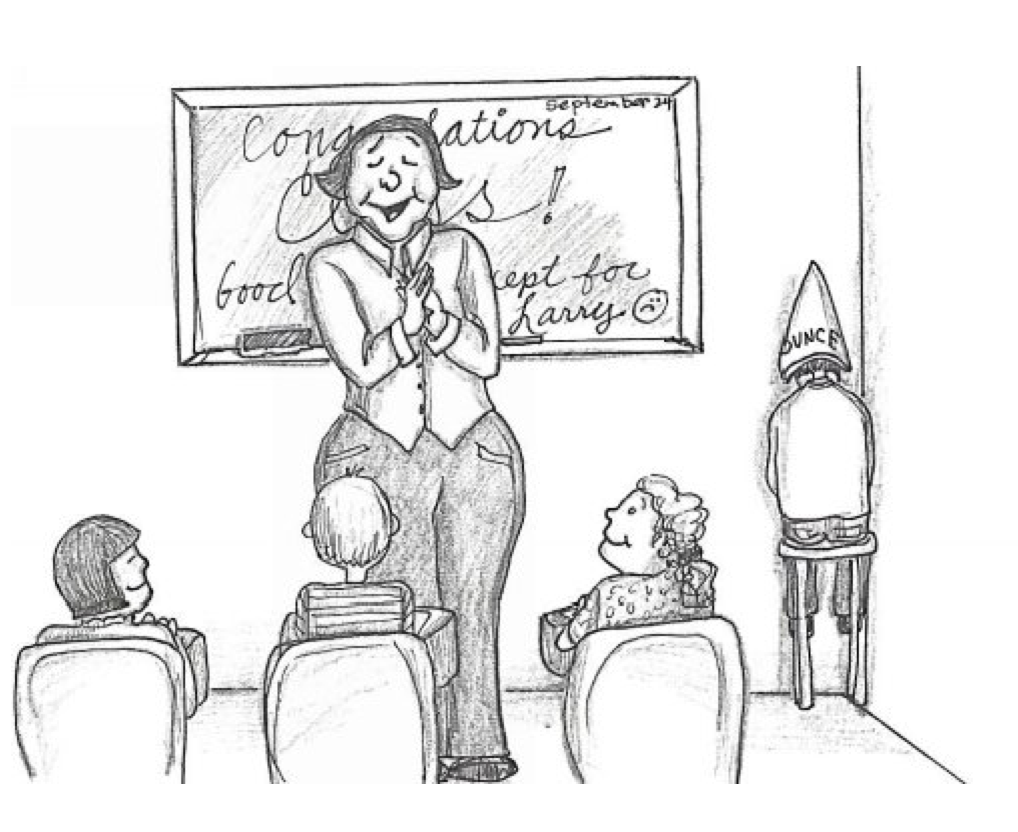 September 24
Cong lations
s!
Good cept for
Larry.
DUNCE